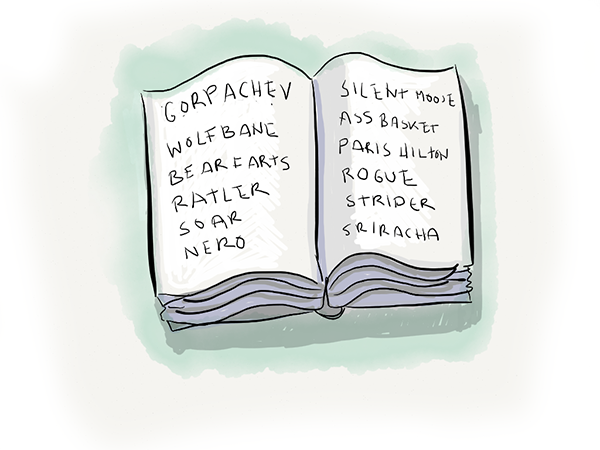 GORPACHEV
WOLFBANE
BEARFARTS
RATLER
SOAR
NERO
SILENT MOOSE
ASS BASKET
PARIS HILTON
ROGUE
STRIDER
SRIRACHA